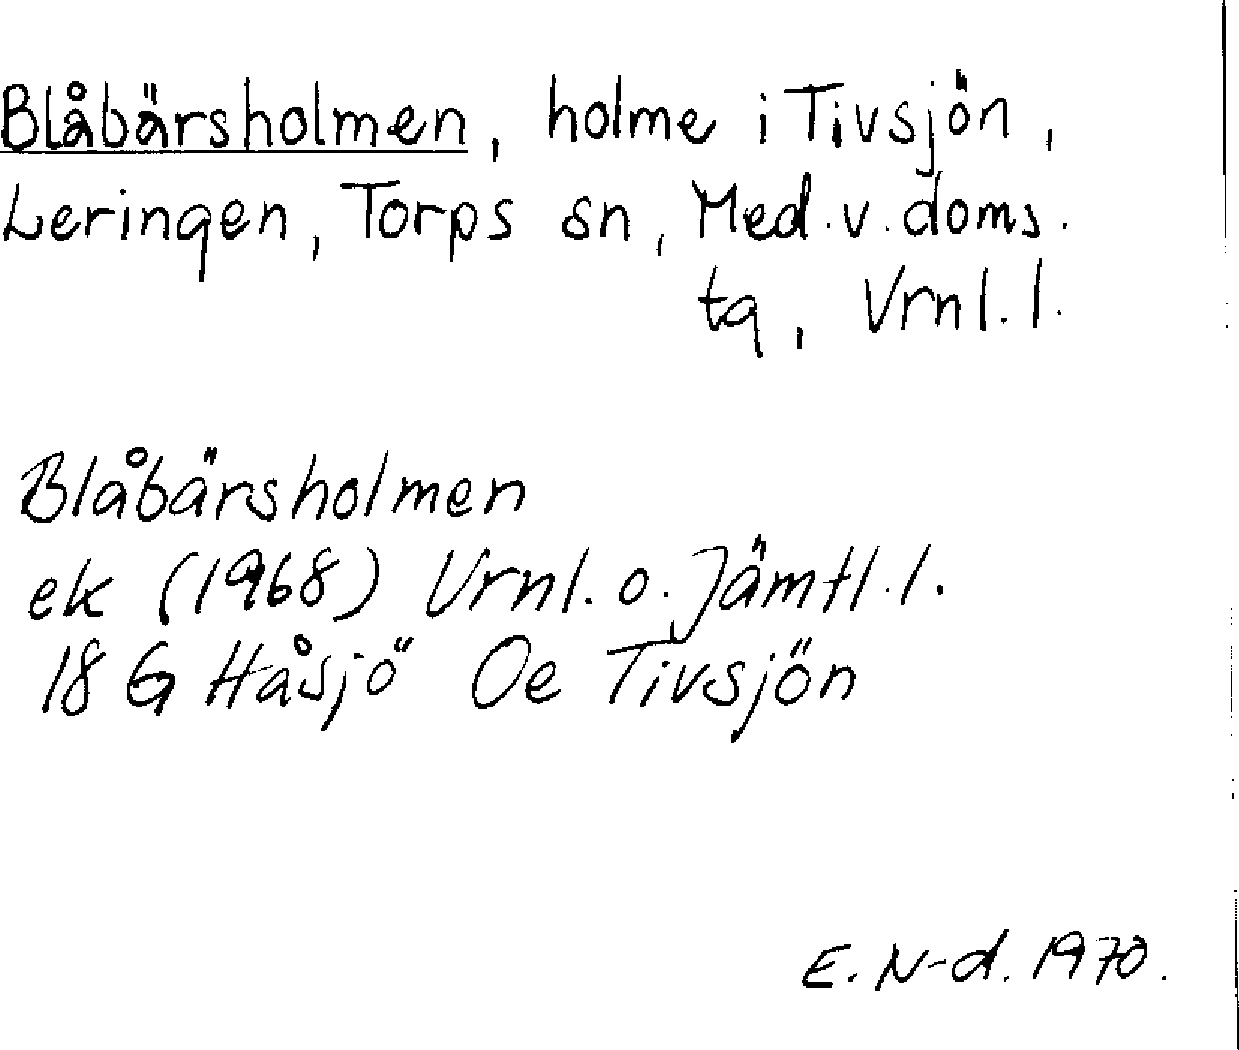 Blåbärsholmen, holme i Tivsjön,
Leringen, Torps sn, Med. v. doms.
tg, Vrnl. l.
Blåbärsholmen
ek (1968) Vrnl. o. Jämtl. l.
18 G Håsjö Oe Tivsjön
E. N-d. 1970.